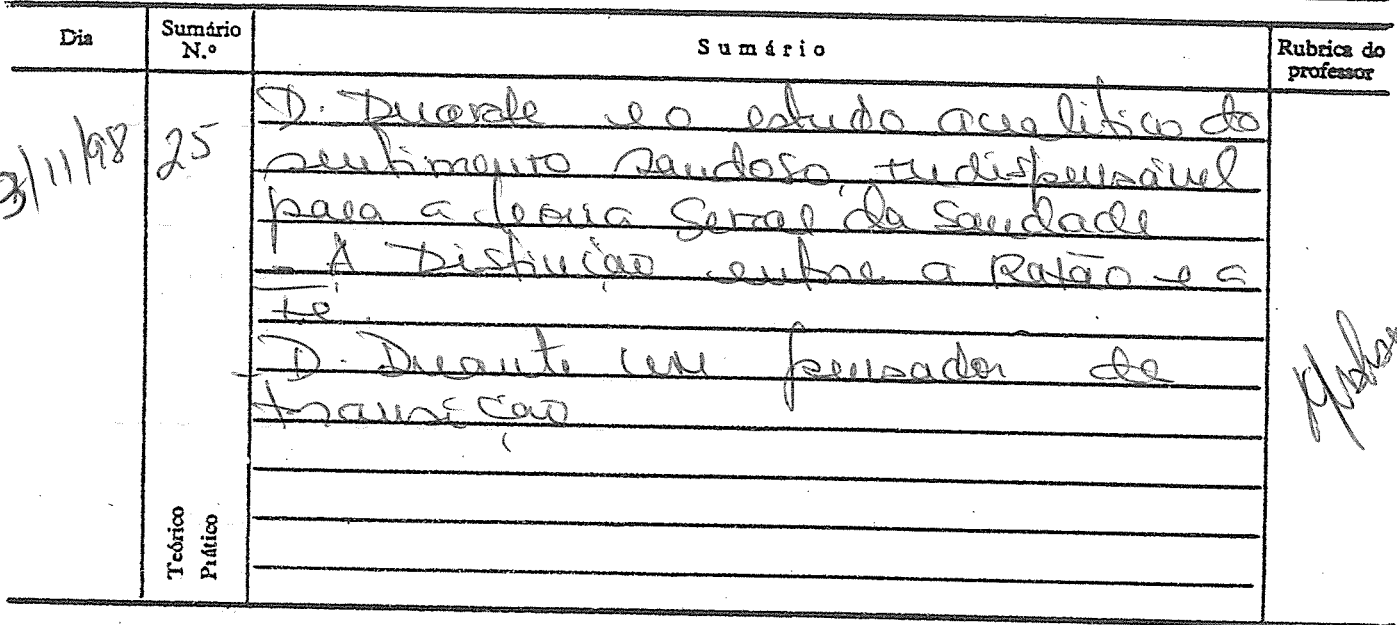 Dia Sumário N.º Sumário Rubrica do professor
3/11/98 25 D. Duarte e o estudo analitico do
sentimento saudoso, indispensável
para a teoria Geral da Saudade
- A Distinção entre a Razão e a
Fé.
D. Duarte um pensador de
transição
Teórico
Prático